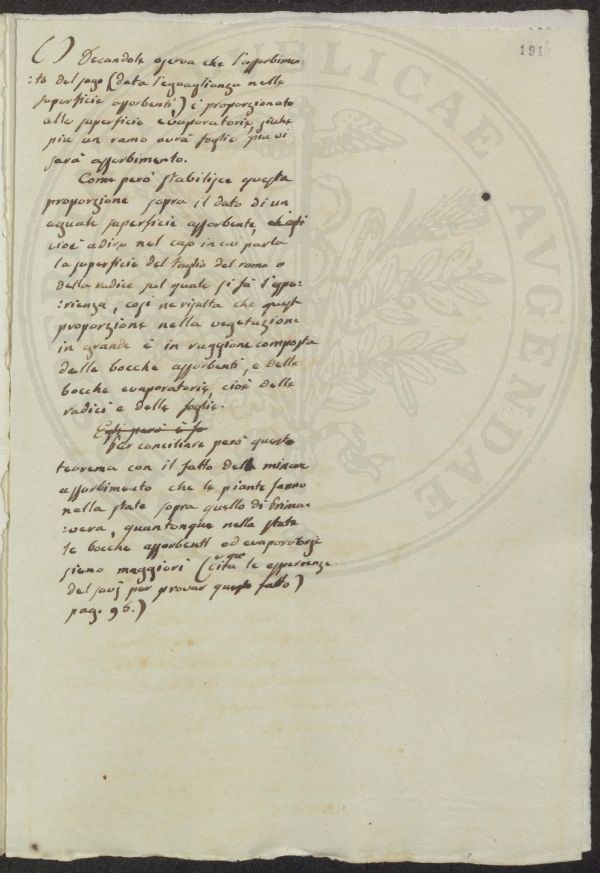 191
( ) Decandole osserva che l'assorbimen:
:to del sugo (data l'eguaglianza nelle
superficie assorbenti) è proporzionato
alle superficie evaporatorie, sicchè
più un ramo avrà foglie più vi
sarà assorbimento.
Come però stabilisce questa
proporzione sopra il dato di un
eguale superficie assorbente,
cioè a dire nel caso in cui parla
la superficie del taglio del ramo o
della radice sul quale si fà l'espe:
:rienza, così ne risulta che questa
proporzione nella vegetazione
in grande è in raggione composta
delle bocche assorbenti, e delle
bocche evaporatorie, cioè delle
radici e delle foglie.
Egli però è fa
Per conciliare però questo
teorema con il fatto del minore
assorbimento che le piante fanno
nella state sopra quello di Prima:
:vera, quantonque nella state
le bocche assorbenti ed evaporatorie
sieno maggiori (cita le esperienze
del per provar questo fatto)
pag. 95.)
PUBLICAE
AGENDAE